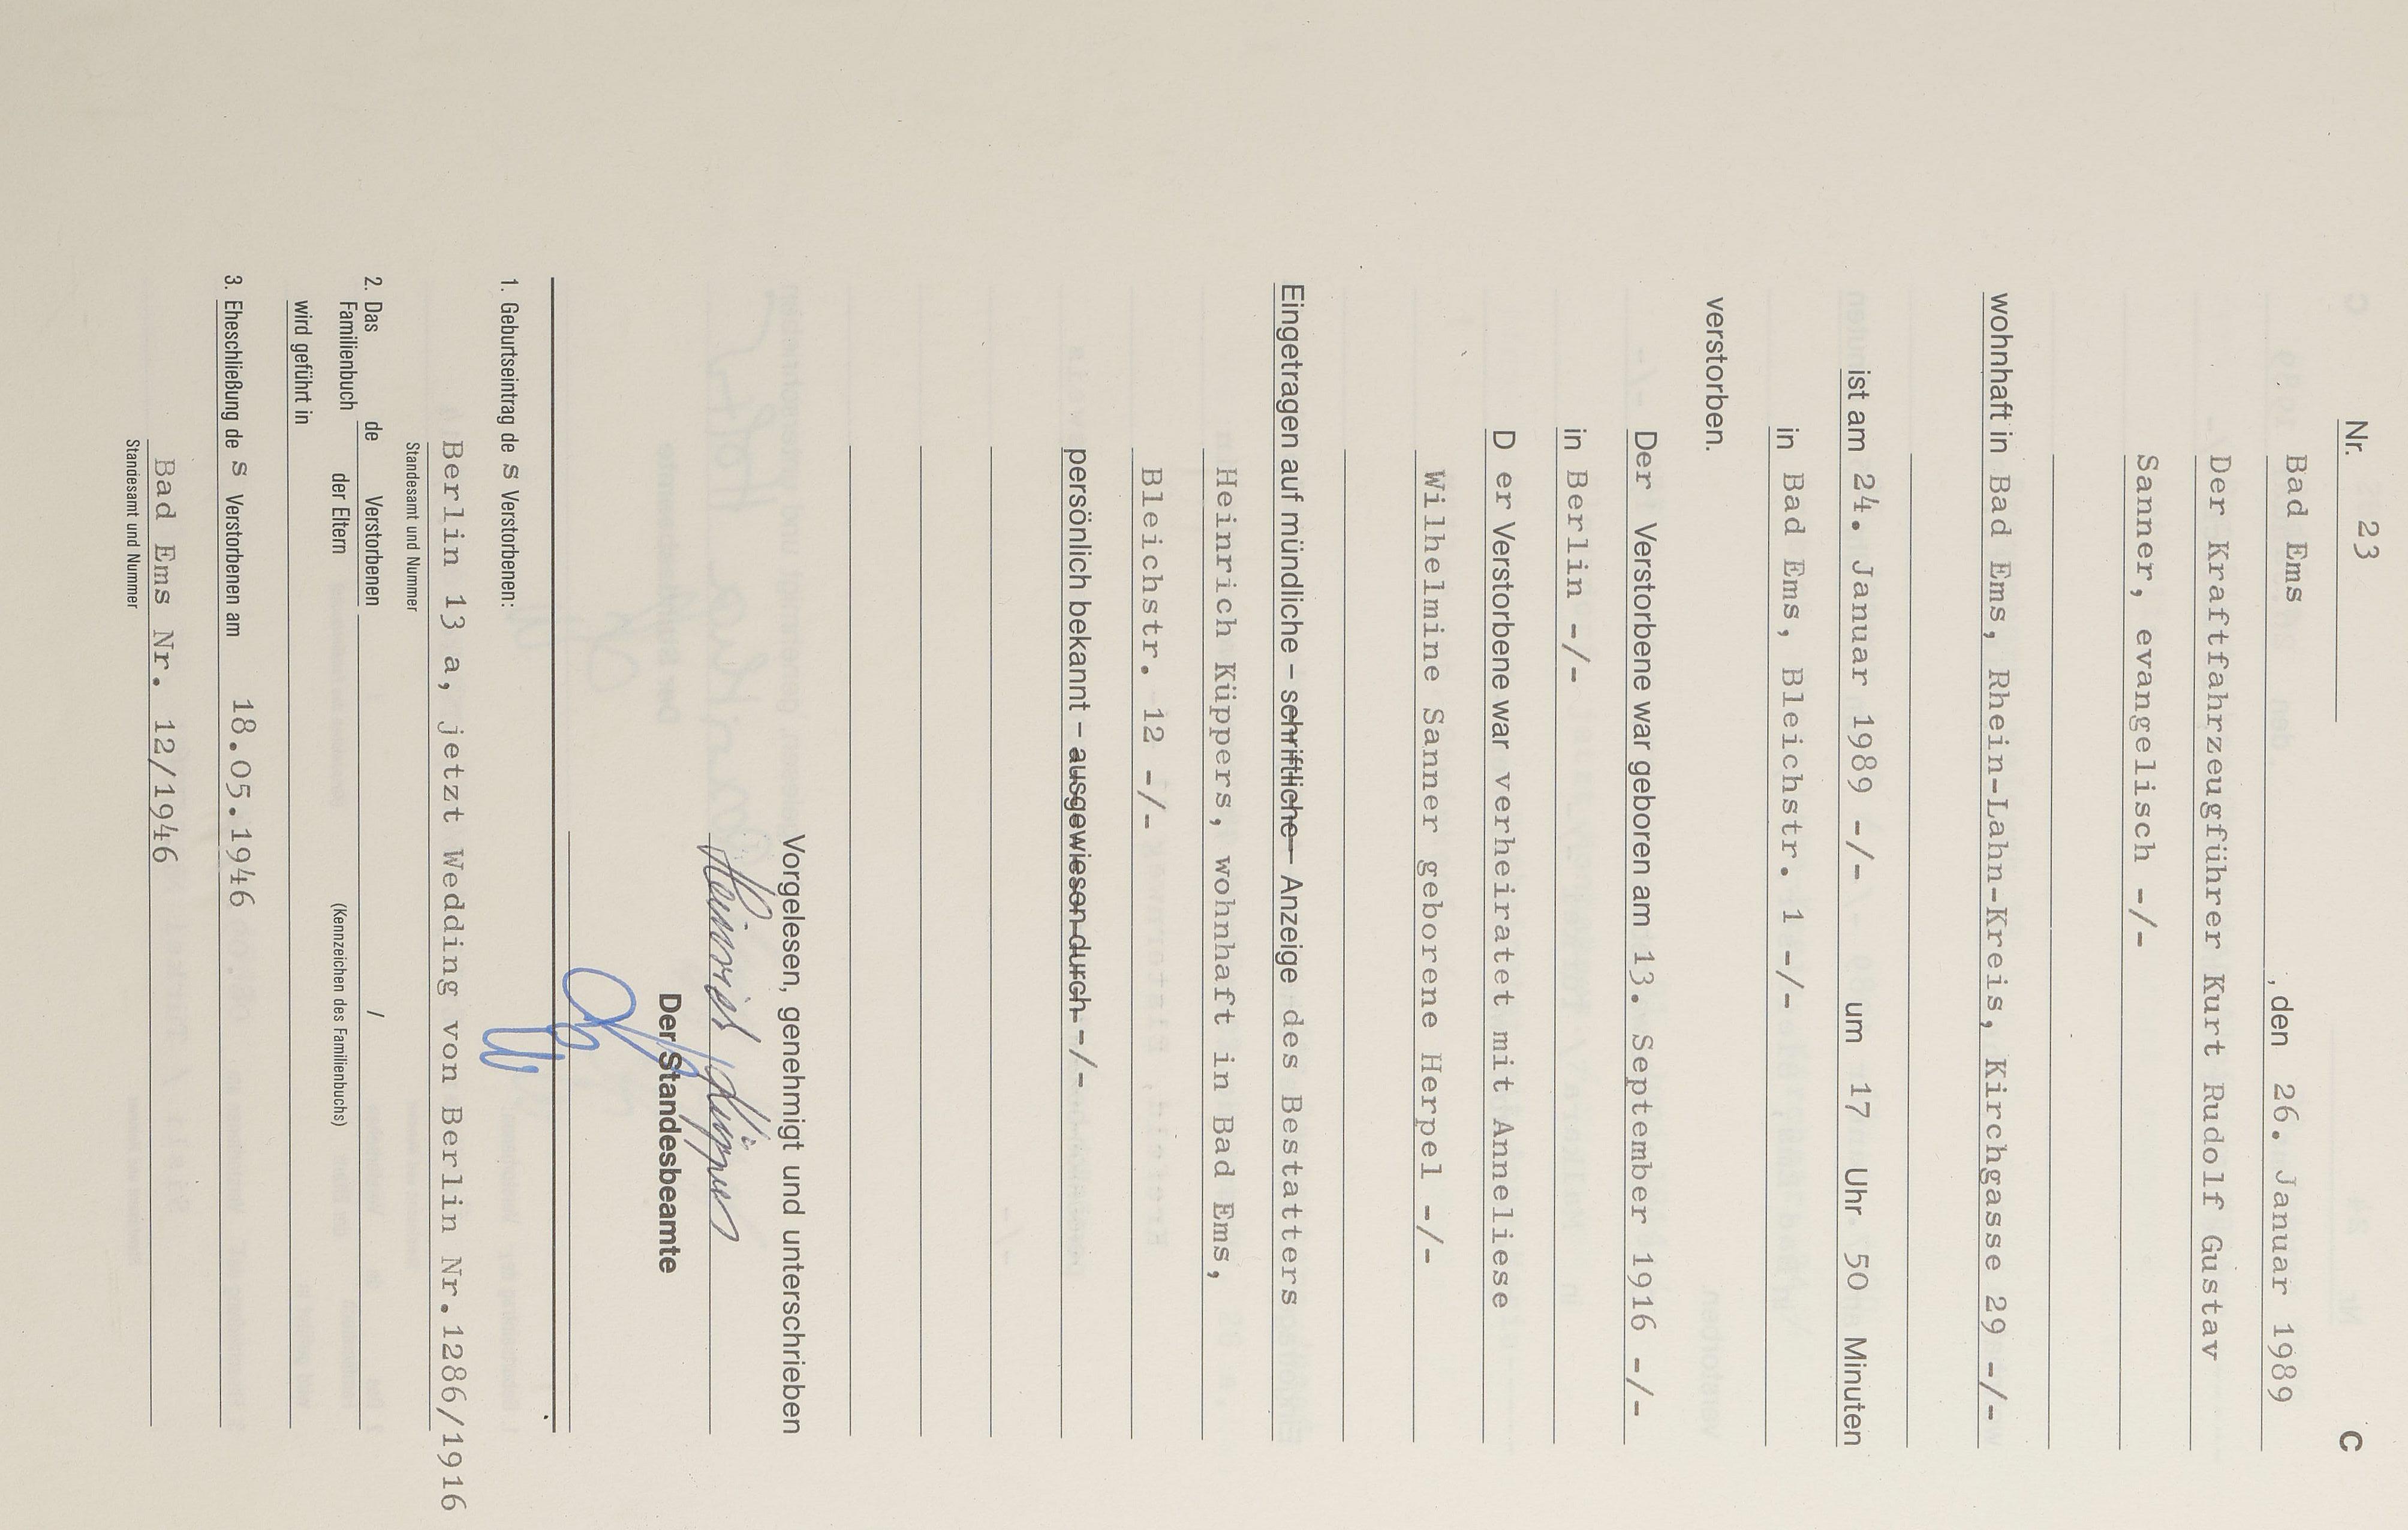 C
Nr. 23
Bad Ems , den 26. Januar 1989
Der Kraftfahrzeugführer Kurt Rudolf Gustav
Sanner, evangelisch -/-
wohnhaft in Bad Ems, Rhein-Lahn-Kreis, Kirchgasse 29 -/-
ist am 24. Januar 1989 -/- um 17 Uhr 50 Minuten
in Bad Ems, Bleichstr. 1 -/-
verstorben.
Der Verstorbene war geboren am 13. September 1916 -/-
in Berlin -/-
D er Verstorbene war verheiratet mit Anneliese
Wilhelmine Sanner geborene Herpel -/-
Eingetragen auf mündliche – schriftliche – Anzeige des Bestatters
Heinrich Küppers, wohnhaft in Bad Ems,
Bleichstr. 12 -/-
persönlich bekannt – ausgewiesen durch -/-
Vorgelesen, genehmigt und unterschrieben
Heinrich Küppers
Der Standesbeamte
1. Geburtseintrag de s Verstorbenen:
Berlin 13 a, jetzt Wedding von Berlin Nr.1286/1916
Standesamt und Nummer
2. Das de Verstorbenen /
Familienbuch der Eltern (Kennzeichen des Familienbuchs)
wird geführt in
3. Eheschließung de s Verstorbenen am 18.05.1946
Bad Ems Nr. 12/1946
Standesamt und Nummer